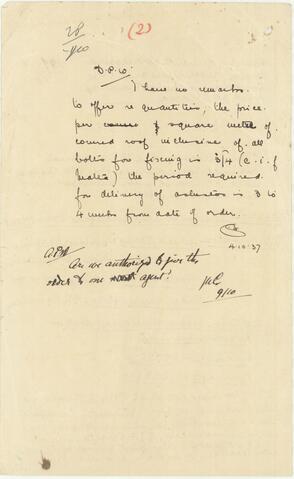 28
9/10
(2)
D.P.W.
I have no remarks
to offer re quantities, the price
per square metre of
covered roof inclusive of all
bolts for fixing is 3/4 (c.i.f
Malta) the period required
for delivery of asbestos is 3 to
4 weeks from date of order.
4.10.37
Are we authorized to give the
order to one agent?
9/10